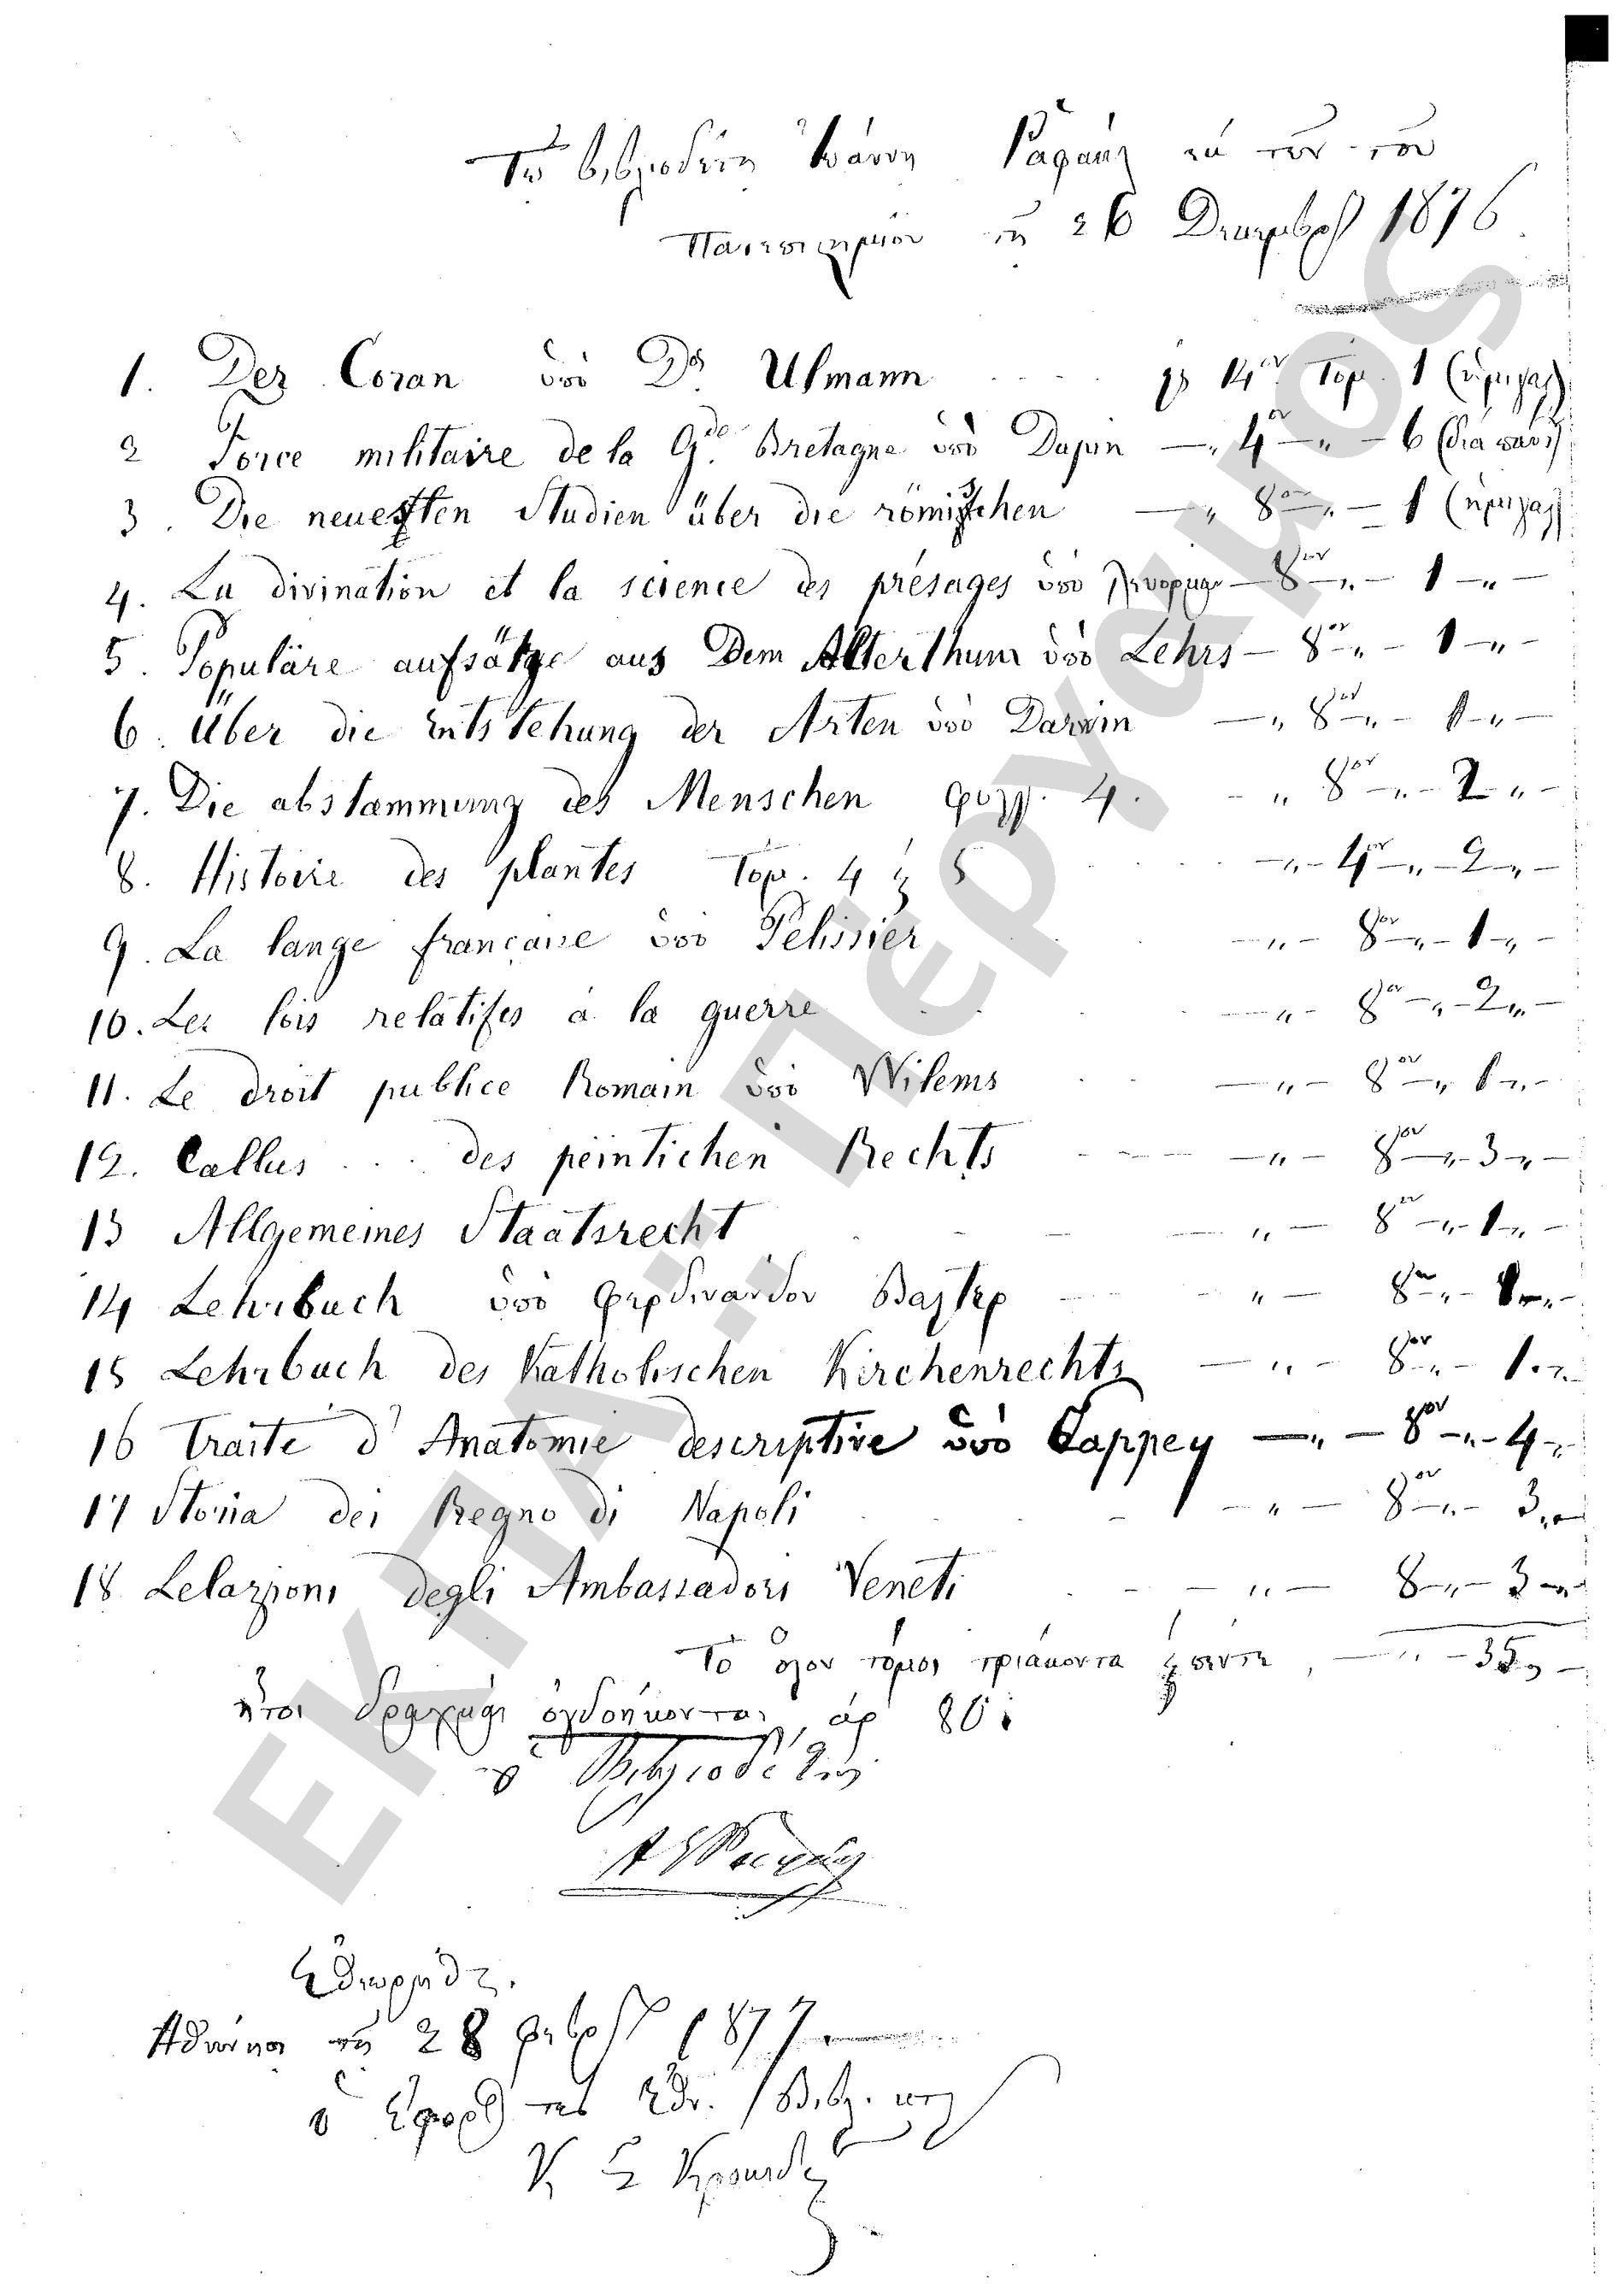 Τῷ βιβλιοδέτῃ Ἰωάννῃ Ραφάνῃ ἐκ τῶν τοῦ
Πανεπιστημίου τῇ 26 Δεκεμβρίου 1876
1. Der Coran ὑπὸ Dr Ulmann εἰς 14ον Τόμ. 1 (ἡμισ.)
2 Force militaire de la Gde Bretagne ὑπὸ Dupin —„ 4ον —„ — 6 (διὰ παν.)
3. Die neuesten Studien über die römischen —„ 8ον —„ — 1 (ἡμισ.)
4. La divination et la science des présages ὑπὸ — 8ον —„ — 1 —„ —
5. Populäre aufsätze aus Dem Alterthum ὑπὸ Lehrs — 8ον —„ — 1 —„ —
6. Über die Entstehung der Arten ὑπὸ Darwin —„ 8ον —„ — 1 —„ —
7. Die abstammung des Menschen φυλλ. 4. — „ 8ον —„ — 2 „ —
8. Histoire des plantes Τόμ. 4 ἢ 5 —„ — 4ον —„ — 2 —„ —
9. La lange française ὑπὸ Pelissier —„ — 8ον —„ — 1 —„ —
10. Les lois relatifes a la guerre —„ — 8ον —„ — 2 „ —
11. Le droit publice Romain ὑπὸ Wilems —„ — 8ον —„ 1 —„ —
12. Callus . . . des peintichen Rechts —„ — 8ον —„ — 3 —„ —
13 Allgemeines Staatsrecht — „ — 8ον —„ — 1 —„ —
14 Lehrbuch ὑπὸ Φερδινάνδου Βάλτερ „ — 8ον —„ — 1 —„ —
15 Lehrbuch des Katholischen Kirchenrechts — „ — 8ον —„ — 1 —„
16 Traite d' Anatomie descriptive ὑπὸ Sappey —„ — 8ον —„ — 4 —„
17 Storia dei Regno di Napoli — „ — 8ον —„ — 3 „ —
18 Lelazioni degli Ambassadori Veneti — „ — 8 —„ — 3 —„
Τὸ ὅλον τόμοι τριάκοντα πέντε, — „ — 35 „ —
ἤτοι δραχμὰς ὀγδοήκοντα, ἀρ 80.
ὁ Βιβλιοδέτης
Ἐθεωρήθη.
Ἀθήνησι τῇ 28 Φεβρ 1877
ὁ Ἔφορος τῆς Ἐθν. Βιβλ. κτλ